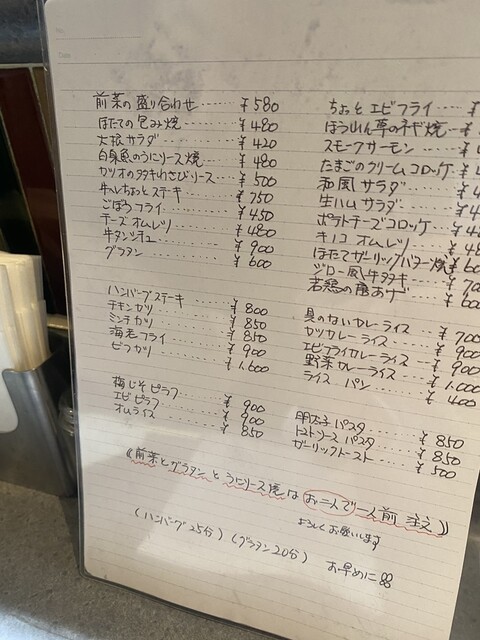 前菜の盛り合わせ……¥580
ほたての包み焼……¥480
大根サラダ……¥420
白身魚のうにソース焼……¥480
カツオのタタキわさびソース……¥500
牛ヘレちょっとステキ……¥750
ごぼうフライ……¥450
チーズオムレツ……¥480
牛タンシチュ……¥900
グラタン……¥600
ハンバーグステーキ……¥800
チキンカツ……¥850
ミンチカツ……¥850
海老フライ……¥900
ビフカツ……¥1,600
梅じそピラフ……¥900
エビピラフ……¥900
オムライス……¥850
ちょっとエビフライ……¥
ほうれん草のチヂ焼……¥
スモークサーモン……¥
たまごのクリームコロッケ……¥
和風サラダ……¥4
生ハムサラダ……¥4
ポテトチーズコロッケ……¥4
キノコオムレツ……¥48
ほたてガーリックバター焼¥60
ジロー風牛タタキ……¥70
若鶏の唐あげ……¥60
具のないカレーライス……¥700
カツカレーライス……¥900
エビフライカレーライス……¥900
野菜カレーライス……¥1,000
ライス パン……¥400
明太子パスタ……¥850
トマトソースパスタ……¥850
ガーリックトースト……¥500
《前菜とグラタンとうにソース焼はお二人で一人前注文》
よろしくお願いします
(ハンバーグ25分)(グラタン20分) お早めに